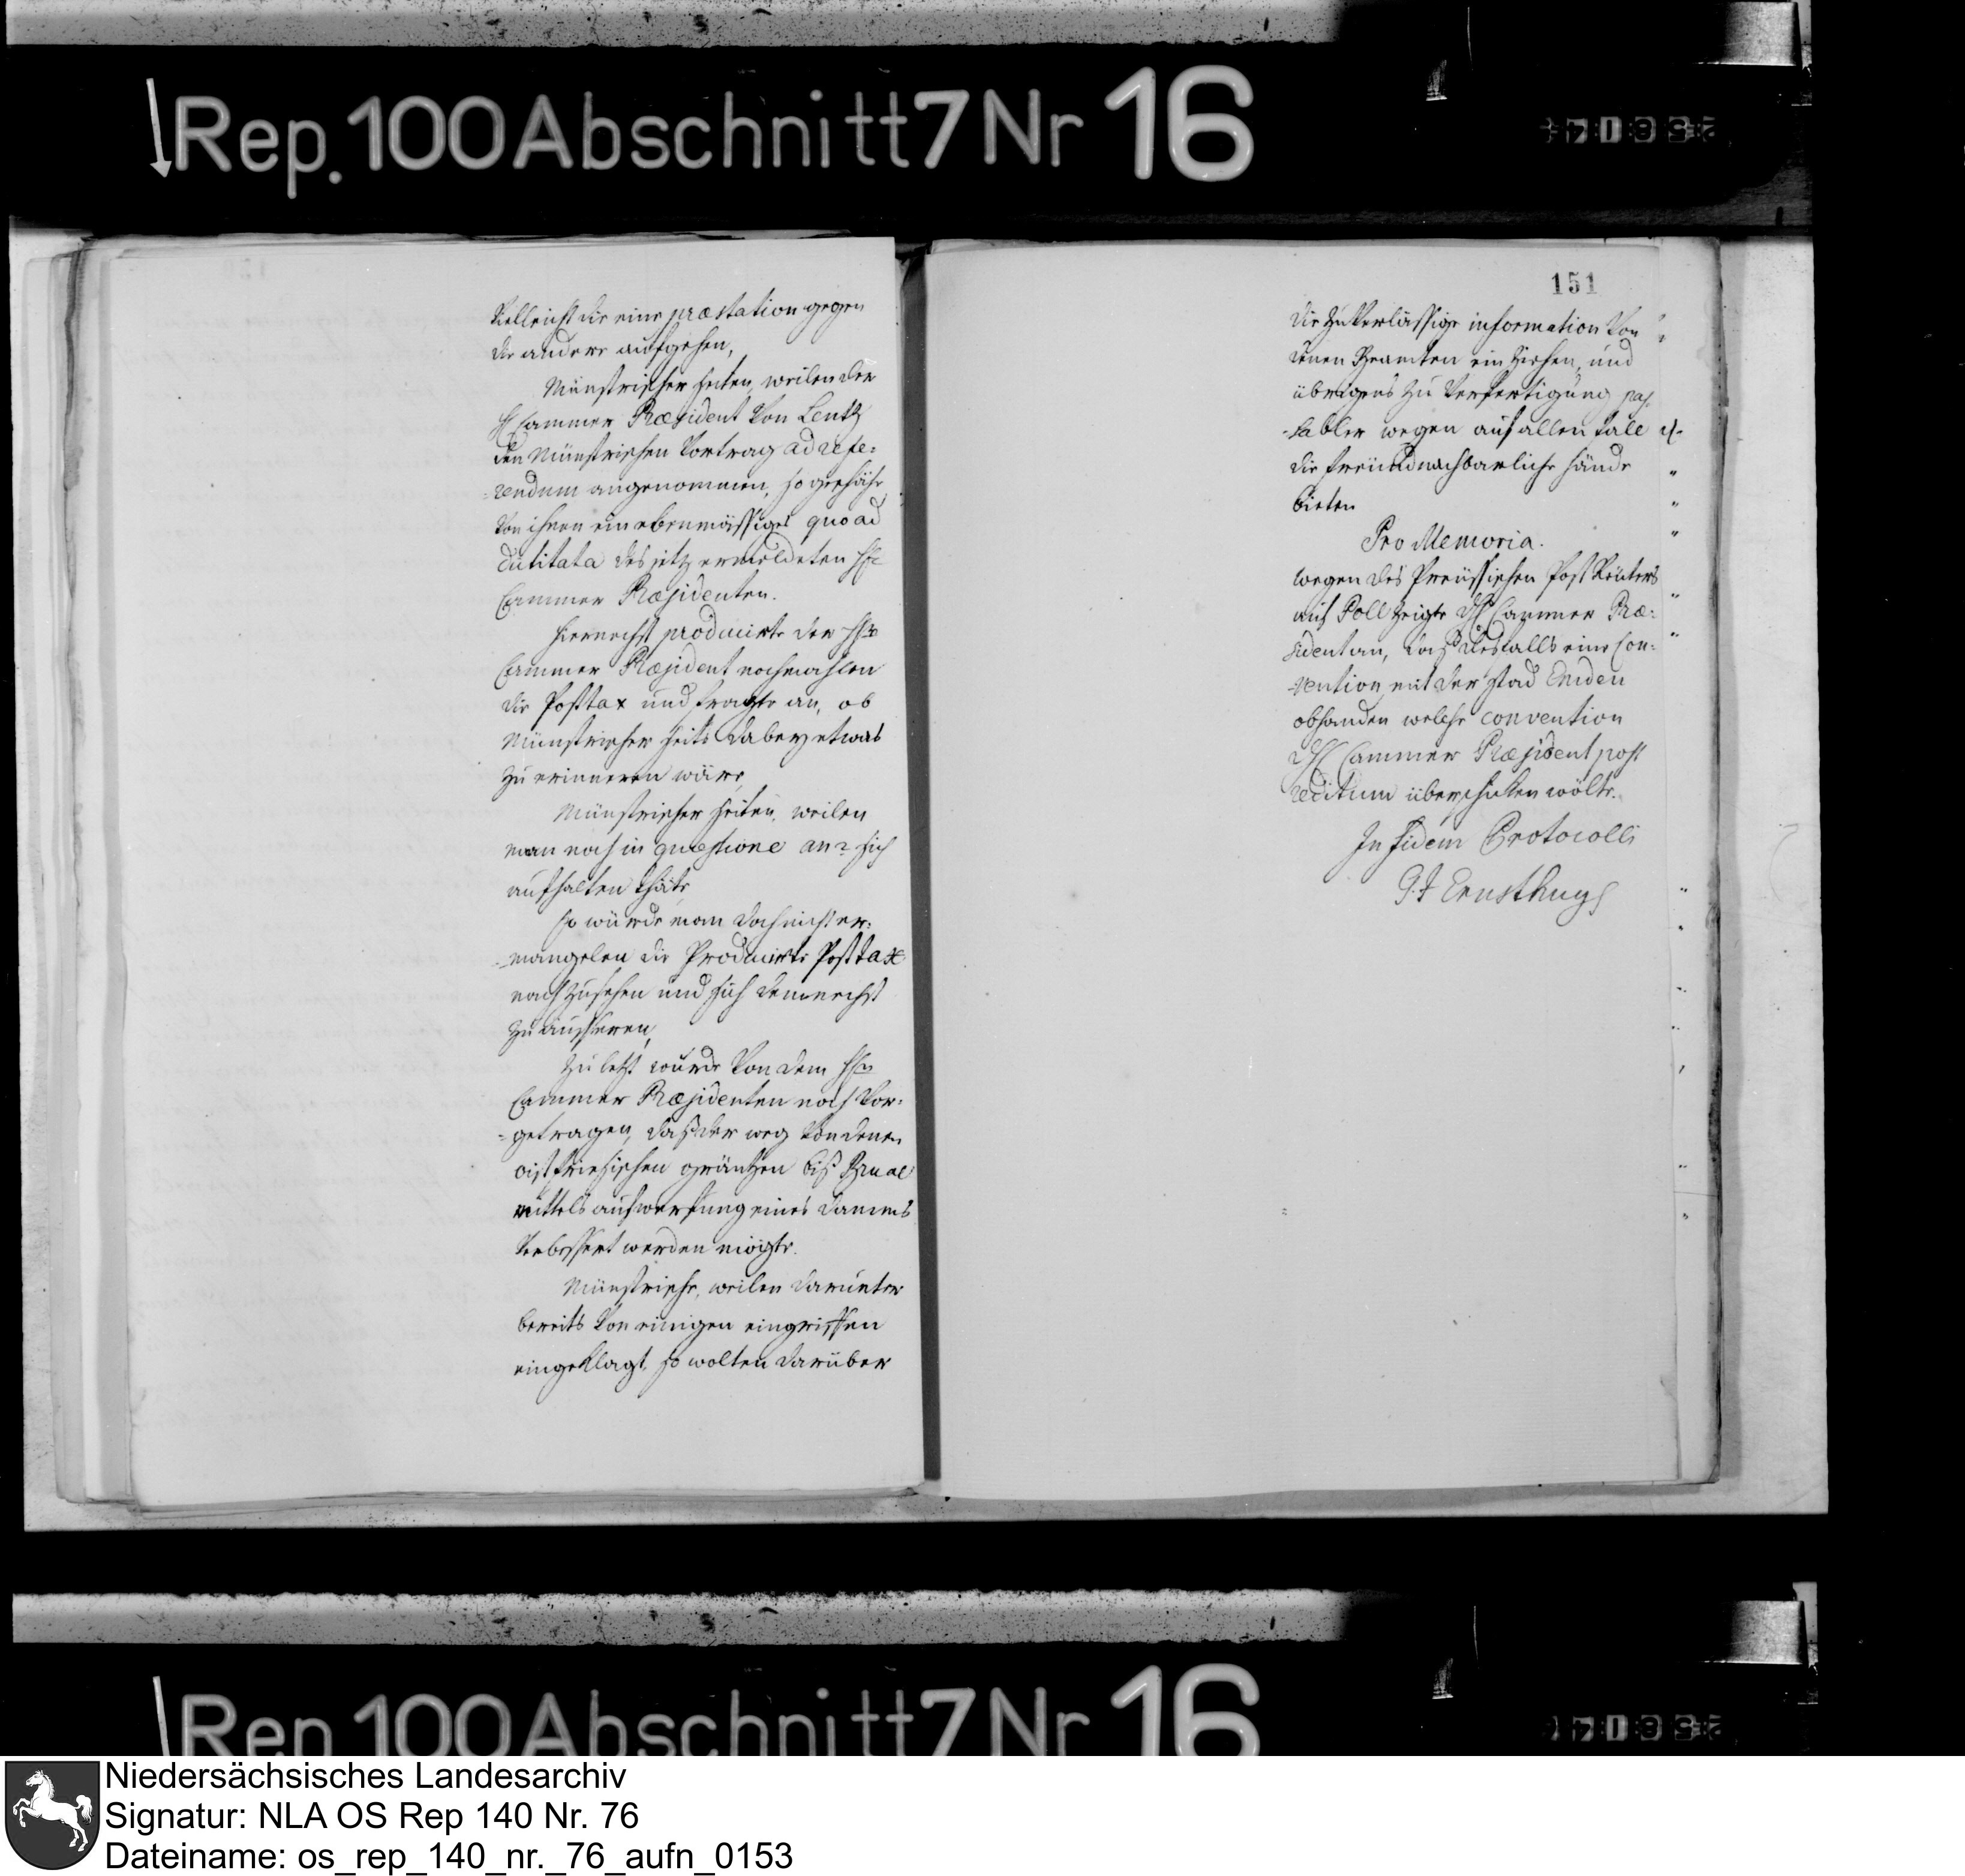 Rep. 100 Abschnitt 7 Nr 16
vielleicht die eine præstation gegen
die andere aufgehen,
Münstrischer seiten, weilen der
H Cammer Præsident von Lentz
den Münstrischen Vortrag ad refe=
=rendum angenommen, so geschähe
von ihnen ein ebenmässiges quoad
des jetz ermeldeten
Cammer Præsidenten.
hiernechst producirte der
Cammer Præsident nochmahlen
die Posttax und fragte an, ob
Münstrischer seits dabey etwas
zu erinneren wäre,
Münstrischer seiten, weilen
man noch in quæstione an? sich
aufhalten thäte,
so würde man doch nicht er=
=mangelen die Producirte Posttax
nachzusehen und sich demnechst
zu äusseren,
zu letzt wurde von dem
Cammer Præsidenten noch vor=
=getragen, daß der weg von denen
ostfriesischen gräntzen biß Brual
mittels aufwerfung eines dammes
verbessert werden mögte.
Münstrische, weilen darunter
bereits von einigen eingriffen
eingeklagt, so wolten darüber
151
die zuverlässige information von
denen Beamten ein ziehen, und
übrigens zu verfertigung pas=
=sabler wegen auf allen fale
die freündnachbarliche hände
bieten
Pro Memoria.
wegen des Preüssischen Post Reüters
auf Poll zeigte H Cammer Præ=
sident an, daß desfalls eine Con=
=vention mit der stad Emden
obhanden welche convention
H Cammer Præsident post
reditum überschicken wölte.
In fidem Protocolli
Rep. 100 Abschnitt 7 Nr 16
Niedersächsisches Landesarchiv
Signatur: NLA OS Rep 140 Nr. 76
Dateiname: os_rep_140_nr._76_aufn_0153